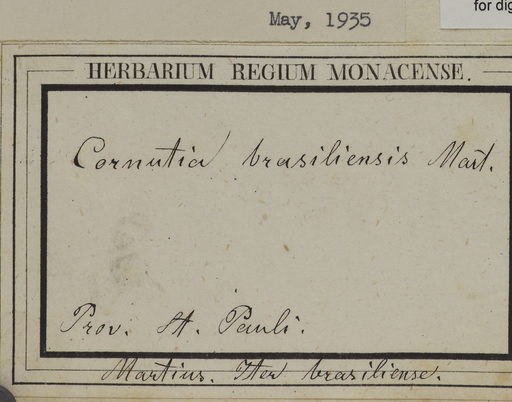 for dig
May, 1935
HERBARIUM REGIUM MONACENSE.
Cornutia brasiliensis Mart.
Prov. St. Pauli.
Martius. Iter brasiliense.